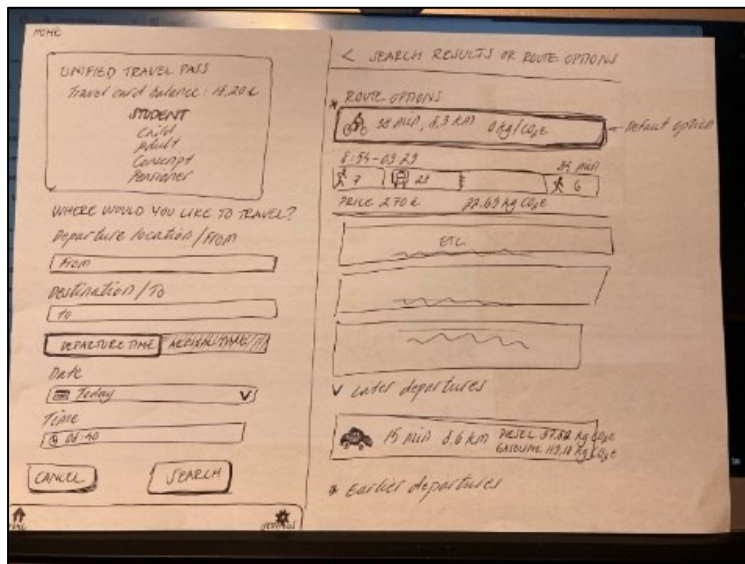 HOME
UNIFIED TRAVEL PASS
Travel card balance: 18,20 €
STUDENT
Child
Adult
Conscript
Pensioner
WHERE WOULD YOU LIKE TO TRAVEL?
Departure location / FROM
From
Destination / To
to
DEPARTURE TIME ARRIVAL TIME
Date
Today
Time
CANCEL SEARCH
SETTINGS
< SEARCH RESULTS OR ROUTE OPTIONS
ROUTE OPTIONS
min, 8,3 km 0 kg/CO2e
Default option
8:54-09:29 34 min
7 23 6
PRICE 2,70 € 22.69 kg CO2e
ETC.
Later departures
15 min 8,6 km DIESEL kg CO2e
GASOLINE kg CO2e
Earlier departures